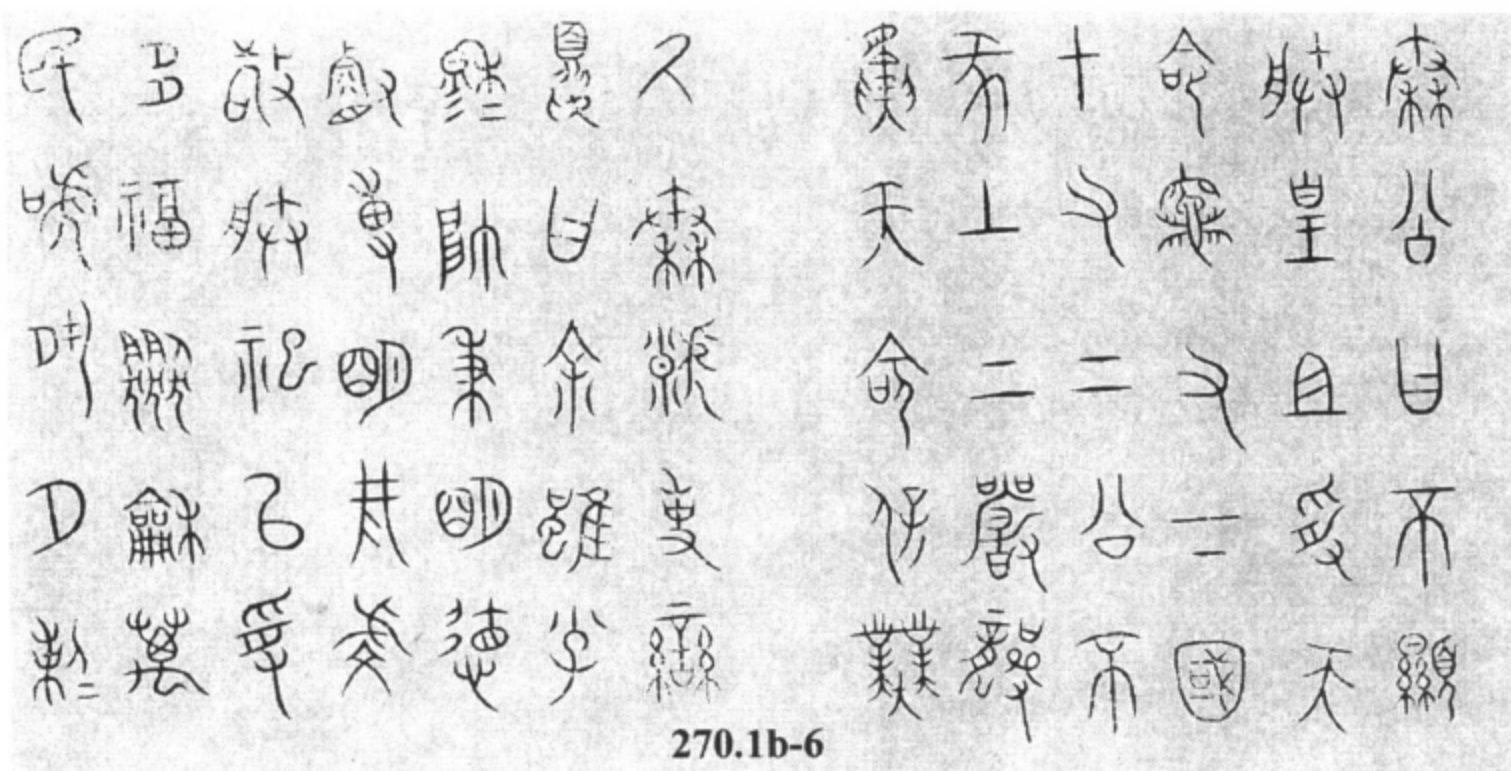 秦公曰不顯
朕皇且受天
命竈又下國
十又二公不
彖上下嚴龏
夤天命保業
氒秦虩事䜌
夏曰余雖小子
穆=帥秉明德
叡尃明井虔
敬朕祀以受
多福協龢萬
民唬夙夕剌=
270.1b-6